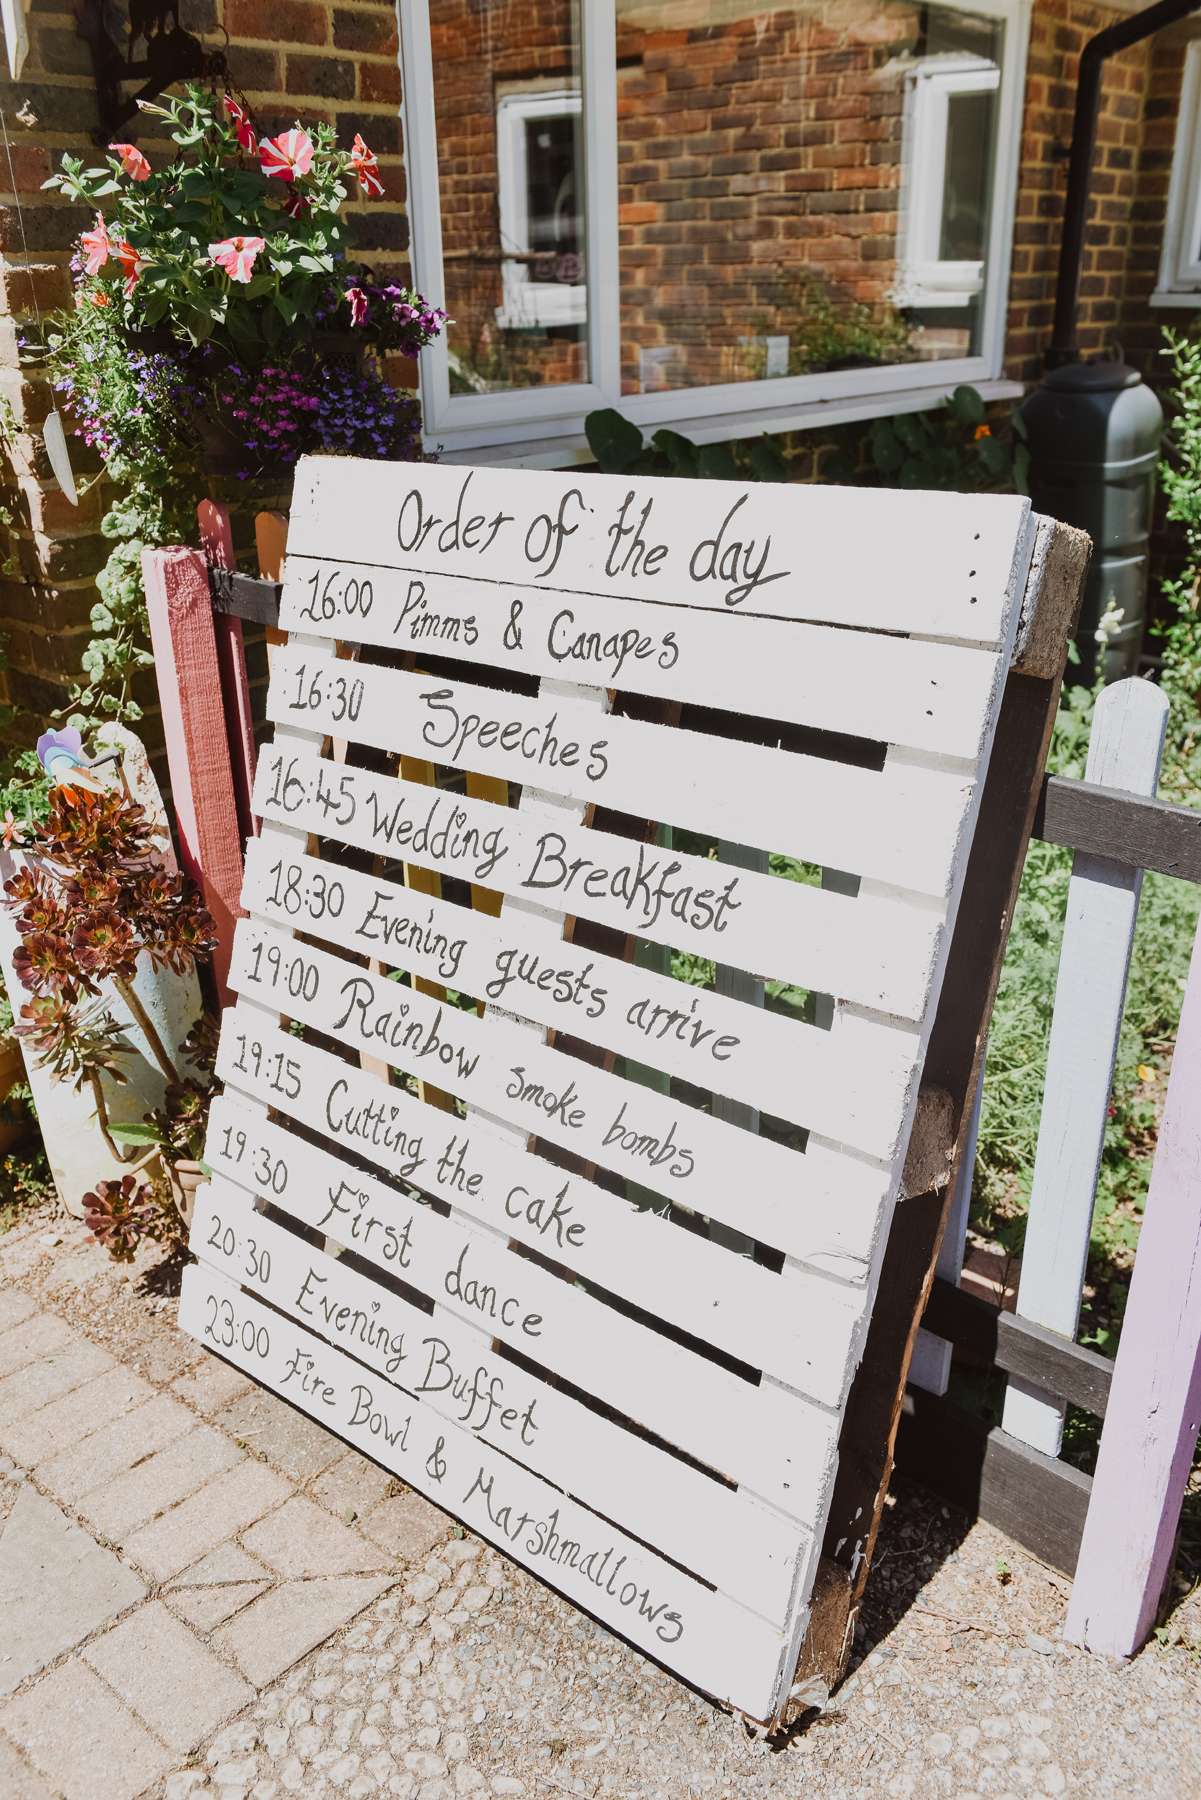 Order of the day
16:00 Pimms & Canapes
16:30 Speeches
16:45 Wedding Breakfast
18:30 Evening guests arrive
19:00 Rainbow smoke bombs
19:15 Cutting the cake
19:30 First dance
20:30 Evening Buffet
23:00 Fire Bowl & Marshmallows